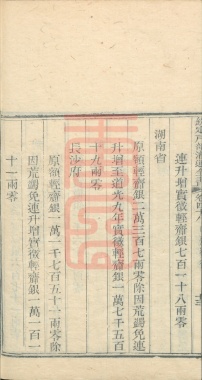 連升增實徵輕齎銀七百一十八兩零
湖南省
原額輕齎銀一萬三百七兩零除固荒蠲免連
升增至道光九年實徵輕齎銀一萬七千五百
十九兩零
長沙府
原額輕齎銀一萬一千七百五十一兩零除
固荒蠲免連升增實徵輕齎銀一萬一百一
十一兩零